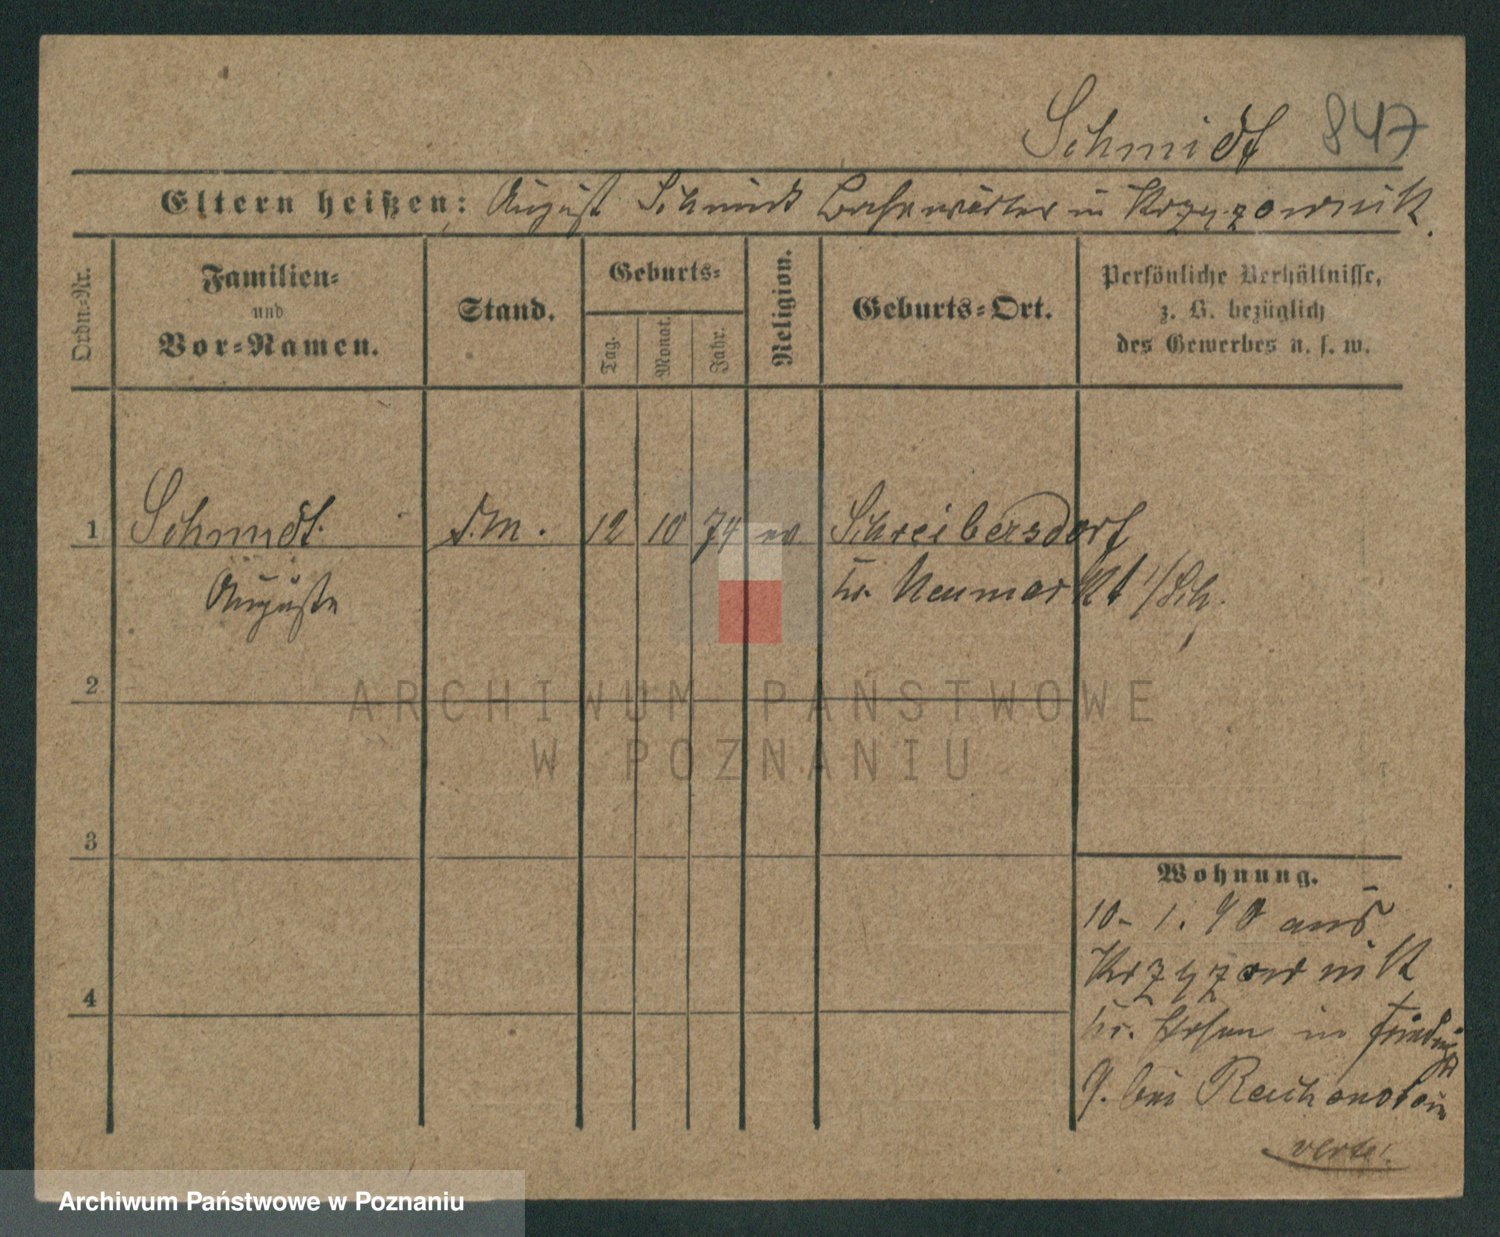 Schmidt 847
Eltern heißen: August Schmidt Bahnwärter in Krzyzownik.
Ordn.-Nr.
Familien-
und
Vor-Namen.
Stand.
Geburts-
Tag.
Monat.
Jahr.
Religion.
Geburts-Ort.
Persönliche Verhältnisse,
z. B. bezüglich
des Gewerbes u. s. w.
1 Schmidt. d.M. 12 10 74 ev Schreibersdorf
Auguste Kr. Neumarkt i/Sch.
2
3
4
Wohnung.
10. 1. 90 aus
Krzyzownik
Kr. Posen in
9. bei
verte!
ARCHIWUM PAŃSTWOWE
W POZNANIU
Archiwum Państwowe w Poznaniu